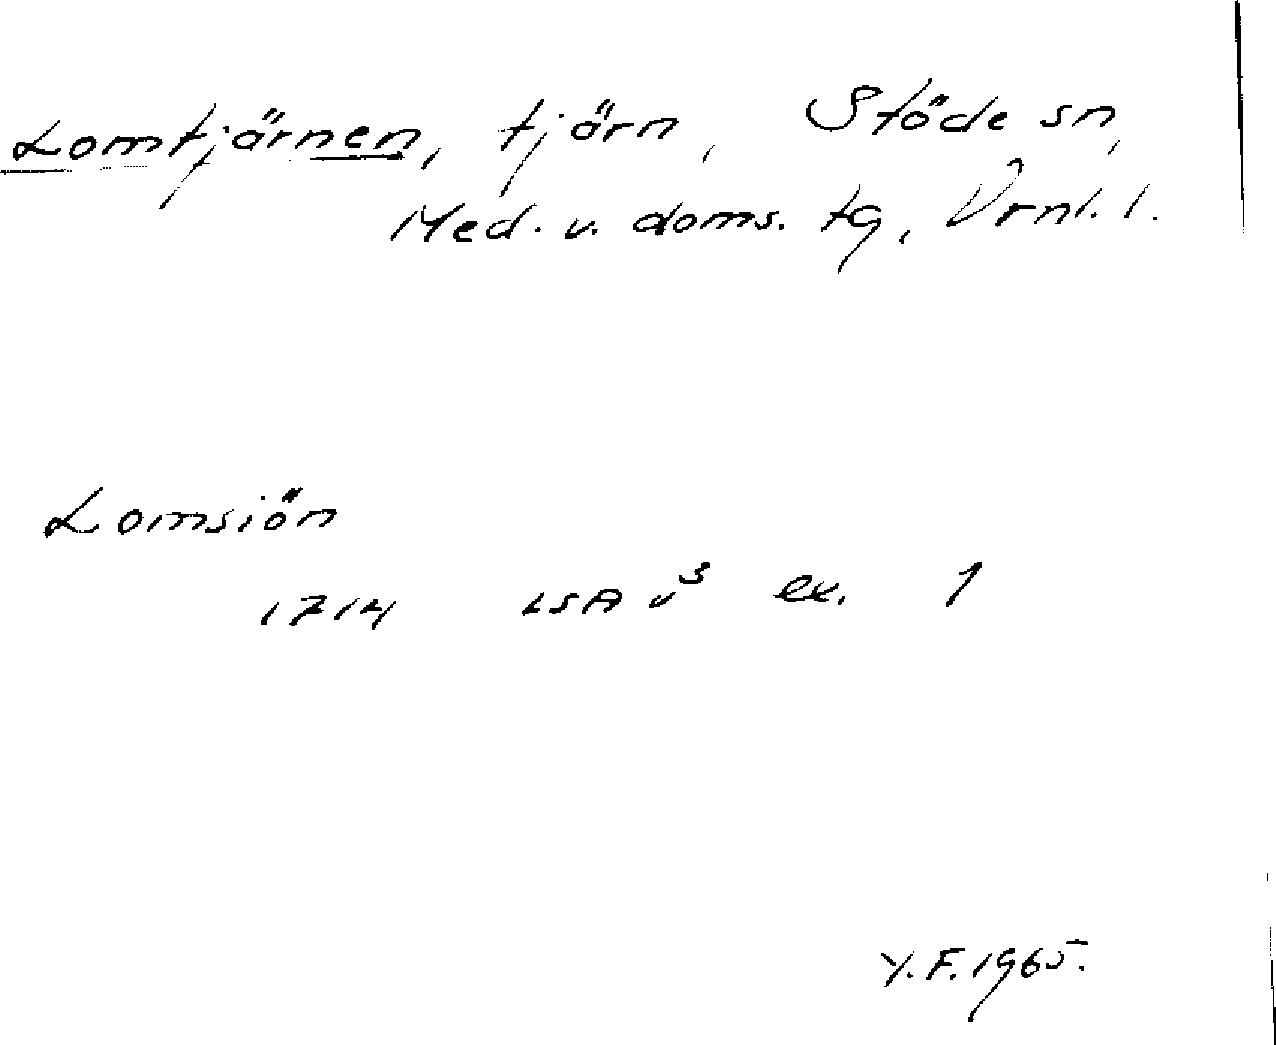 Lomtjärnen, tjärn, Stöde sn,
Med. v. doms. tg, Vrnl. l.
Lomsiön
1714 LSA v³ ex. 1
Y.F. 1965.